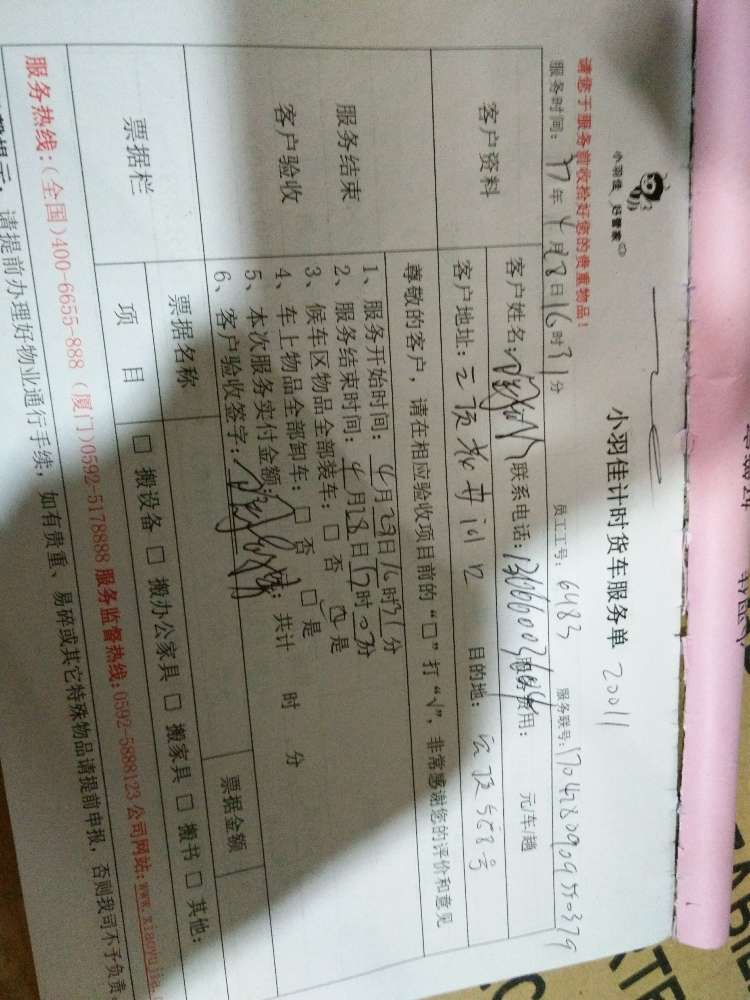 小羽佳 好管家
小羽佳计时货车服务单 20011
请您于服务前收拾好您的贵重物品！
服务时间：17年4月28日16时31分 员工工号：6483 服务联号：
客户资料
客户姓名： 联系电话： 服务费用： 元/车/趟
客户地址： 目的地：云顶568号
尊敬的客户，请在相应验收项目前的“□”打“√”，非常感谢您的评价和意见
服务结束
客户验收
1、服务开始时间：4月28日16时31分
2、服务结束时间：4月28日17时07分
3、候车区物品全部装车：□ 否 □ 是
4、车上物品全部卸车：□ 否 □ 是
5、本次服务实付金额： 共计 时 分
6、客户验收签字：
票据栏
票据名称 票据金额
项 目 □ 搬设备 □ 搬办公家具 □ 搬家具 □ 搬书 □ 其他：
服务热线：(全国)400-6655-888 (厦门)0592-5178888 服务监督热线：0592-5888123 公司网站：www.xiaoyujia.
请提前办理好物业通行手续，如有贵重、易碎或其它特殊物品请提前申报，否则我司不予负责